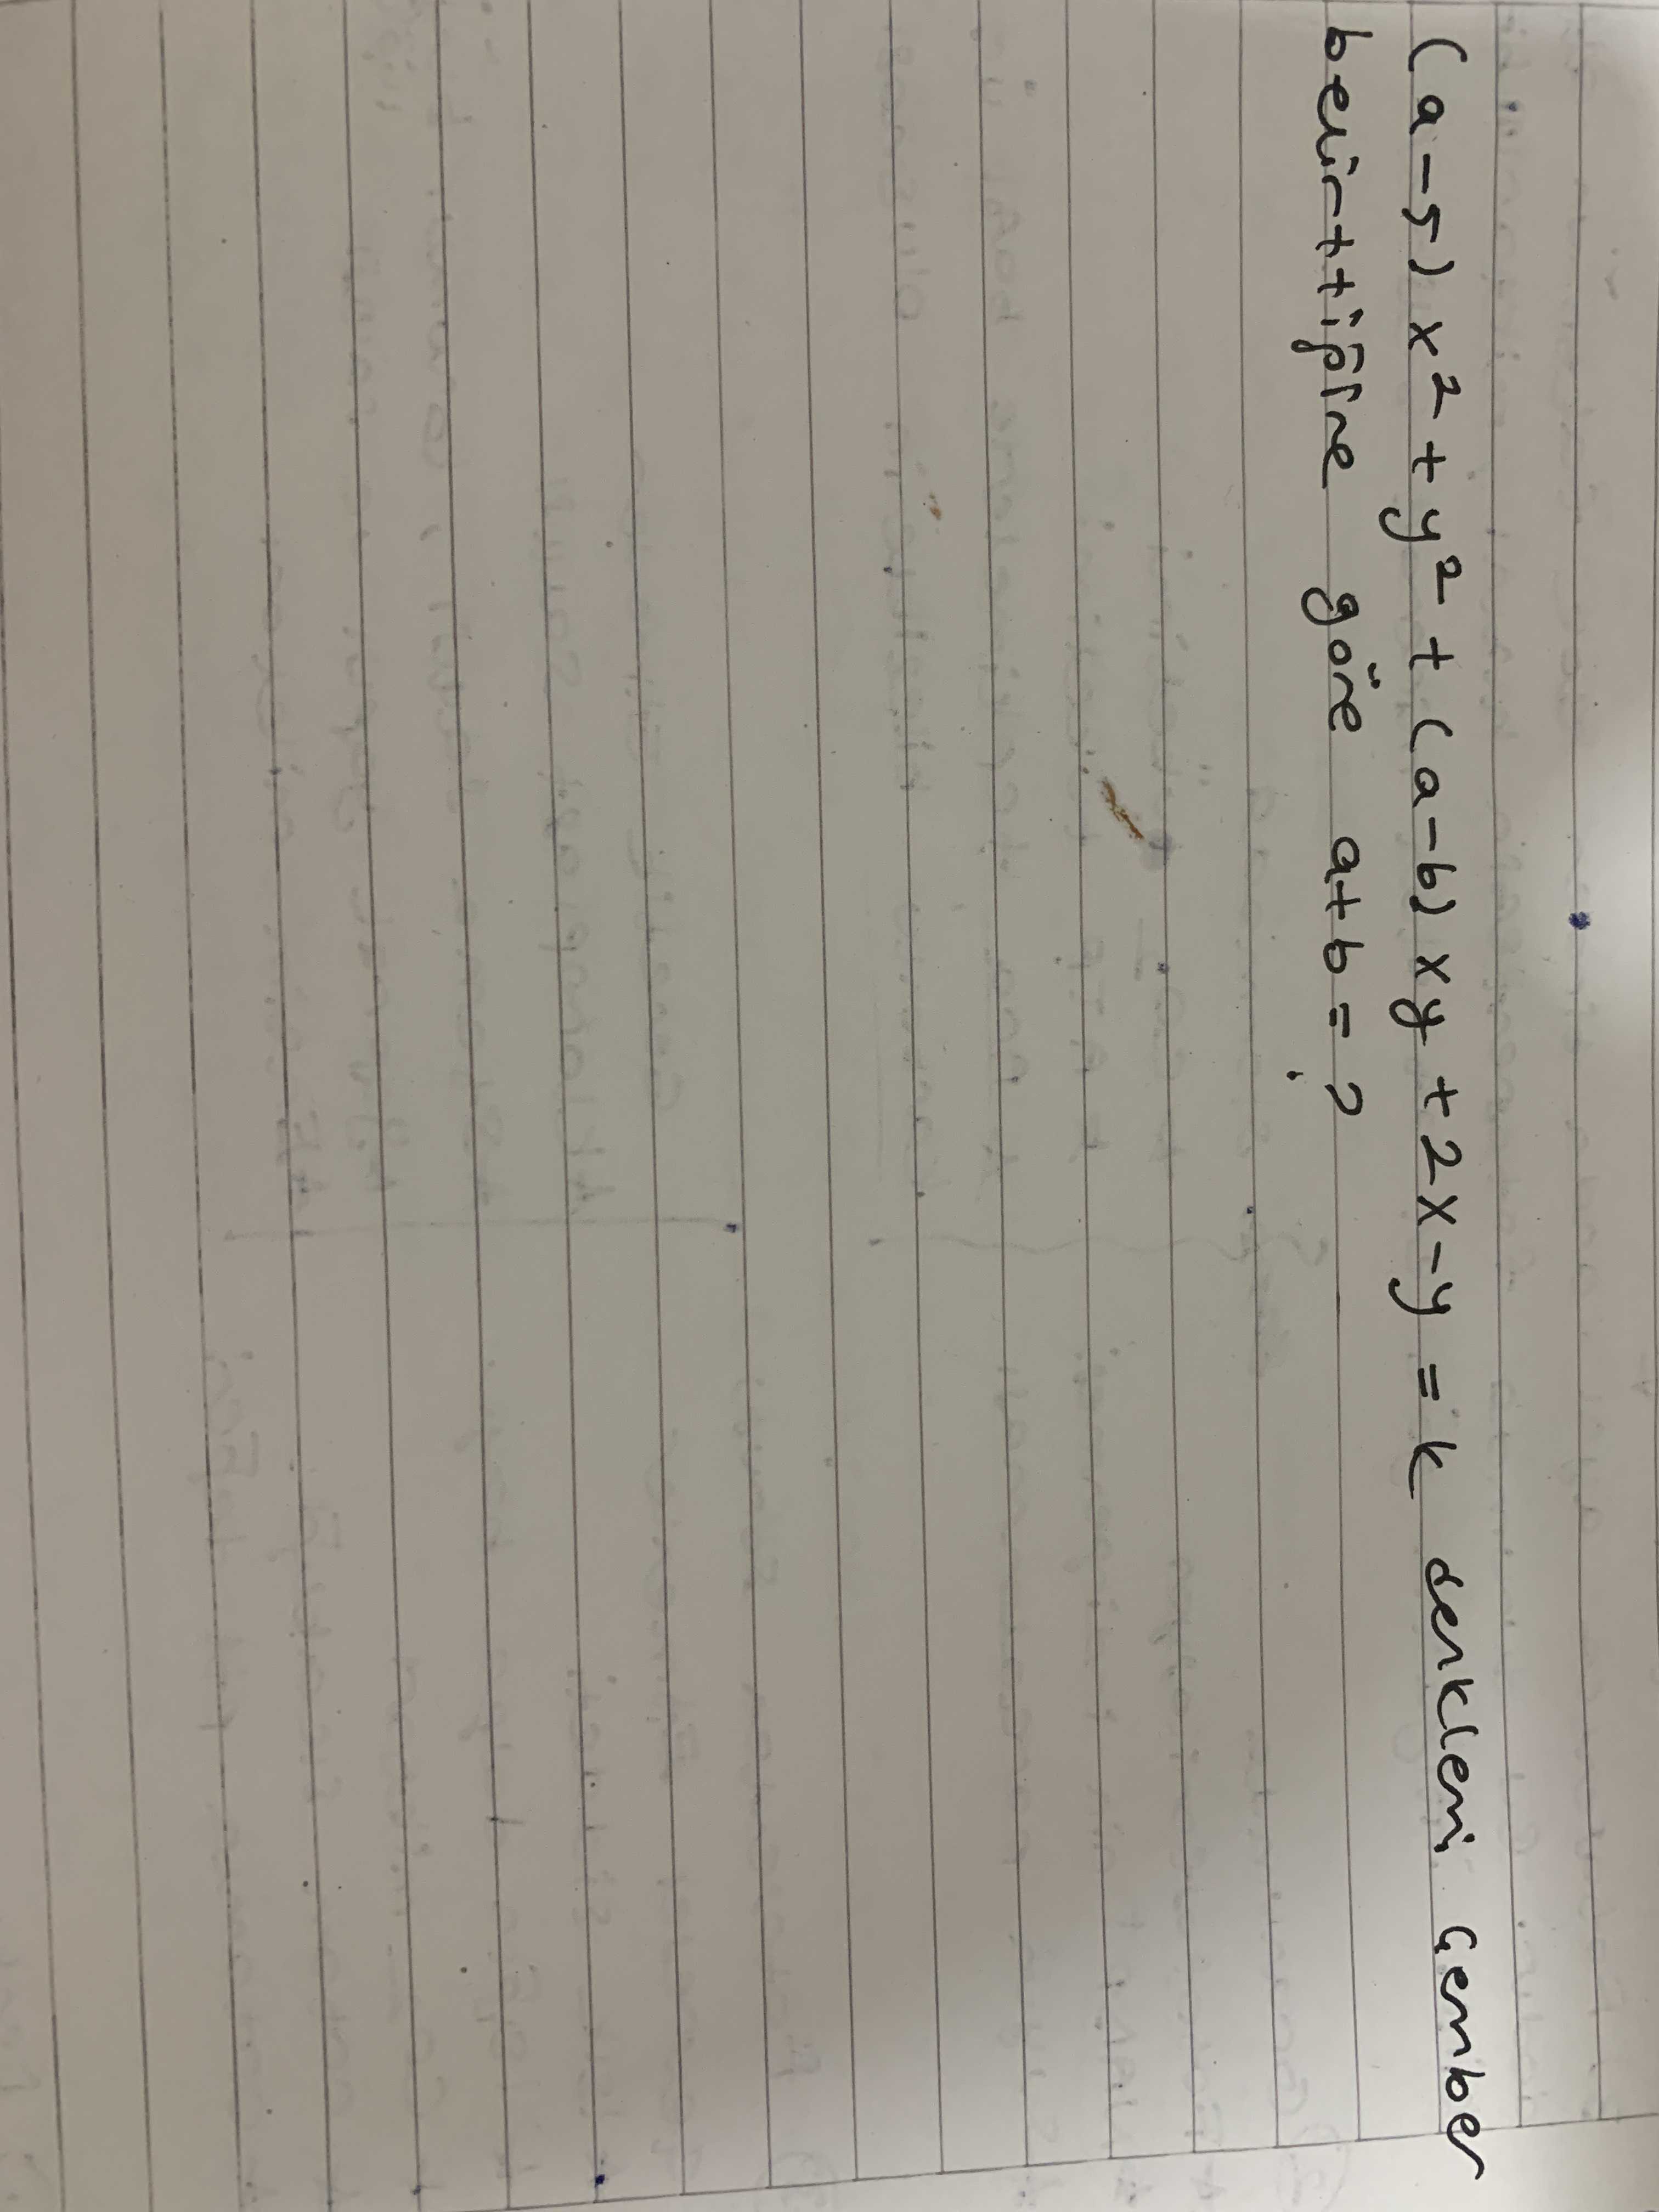 (a-5)x² + y² + (a-b)xy + 2x-y = k denklemi çember
belirttiğine göre a+b = ?